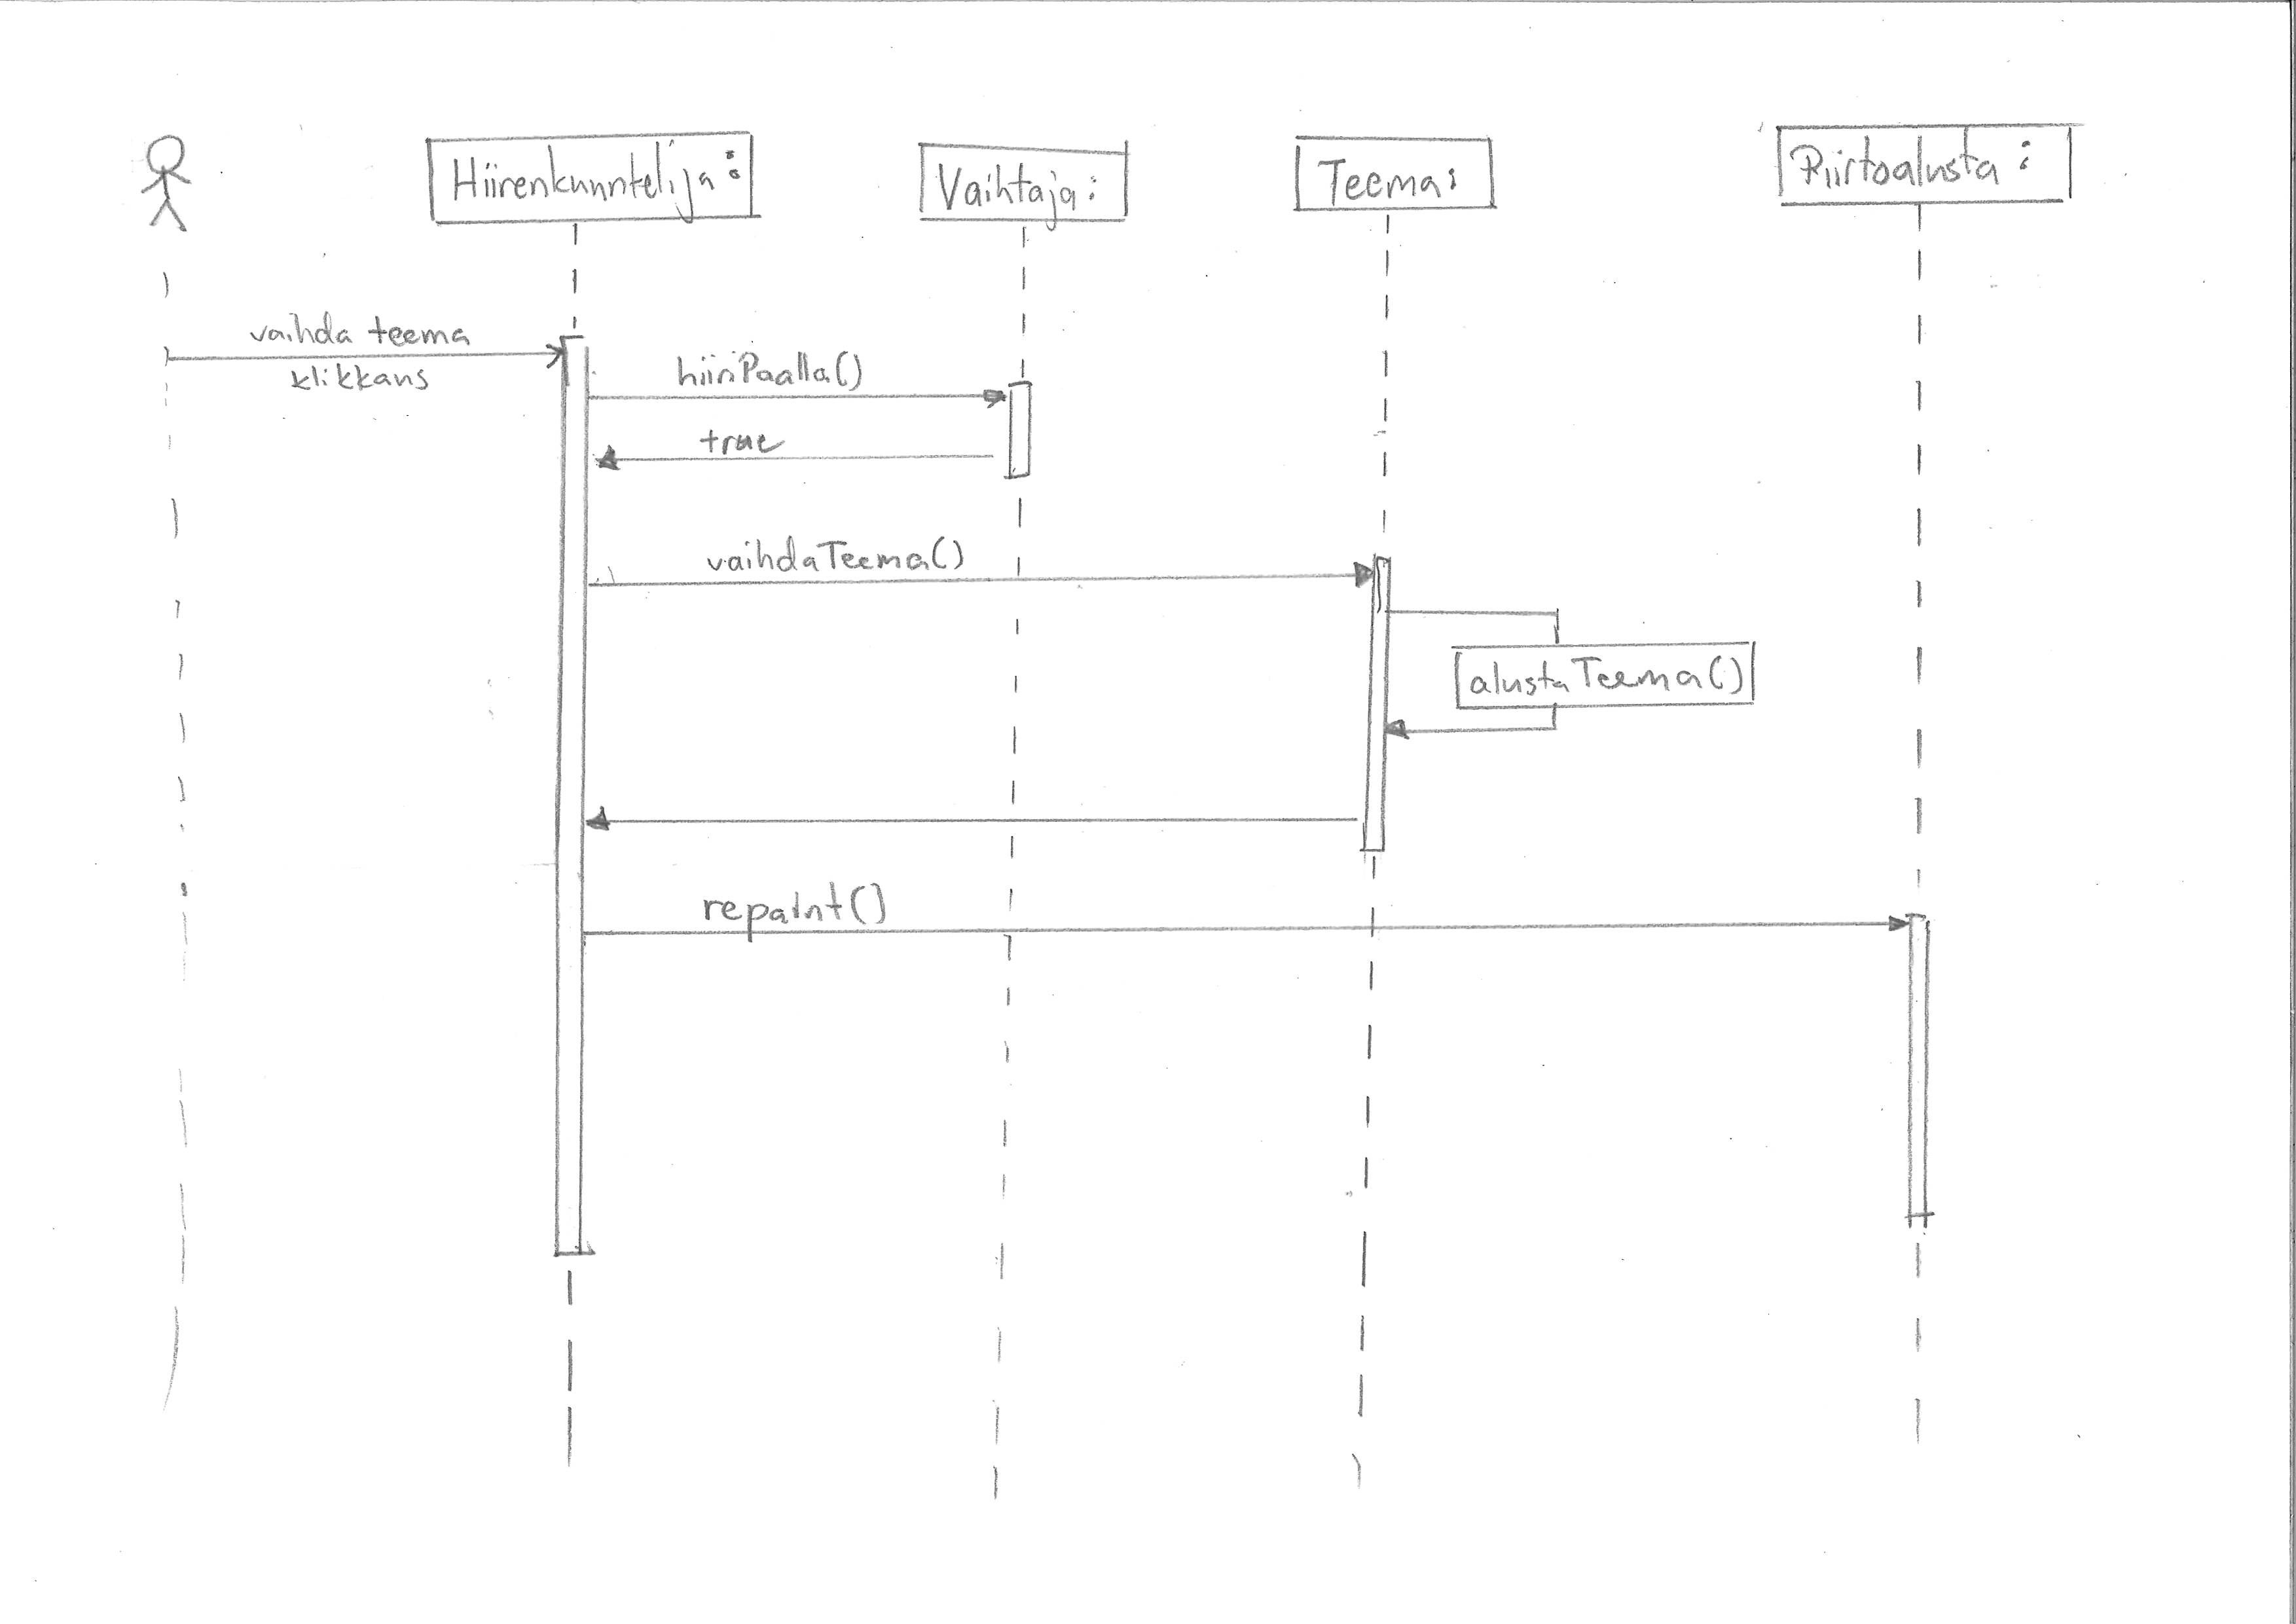 Hiirenkuuntelija:
Vaihtaja:
Teema:
Piirtoalusta:
vaihda teema
klikkaus
hiiriPaalla()
true
vaihdaTeema()
alustaTeema()
repaint()